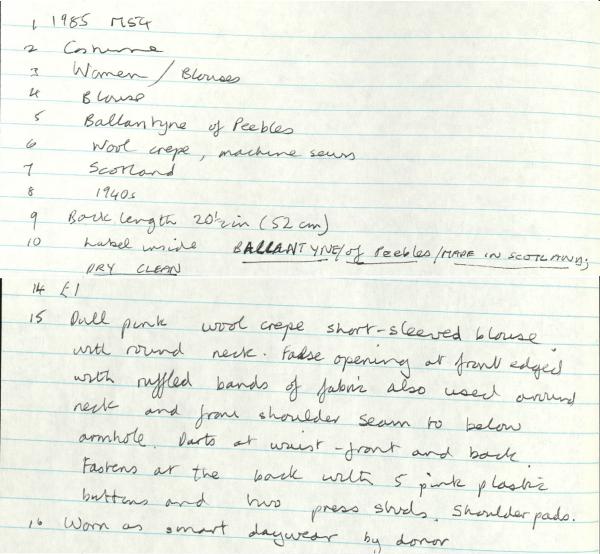 1 1985 M54
2 Costume
3 Women / Blouses
4 Blouse
5 Ballantyne of Peebles
6 Wool crepe, machine sewn
7 Scotland
8 1940s
9 Back length 20½in (52 cm)
10 Label inside BALLANTYNE/of Peebles/MADE IN SCOTLAND;
DRY CLEAN
14 £1
15 Dull pink wool crepe short-sleeved blouse
with round neck. False opening at front edged
with ruffled bands of fabric also used around
neck and from shoulder seam to below
armhole. Darts at waist-front and back.
Fastens at the back with 5 pink plastic
buttons and two press studs. Shoulder pads.
16 Worn as smart daywear by donor